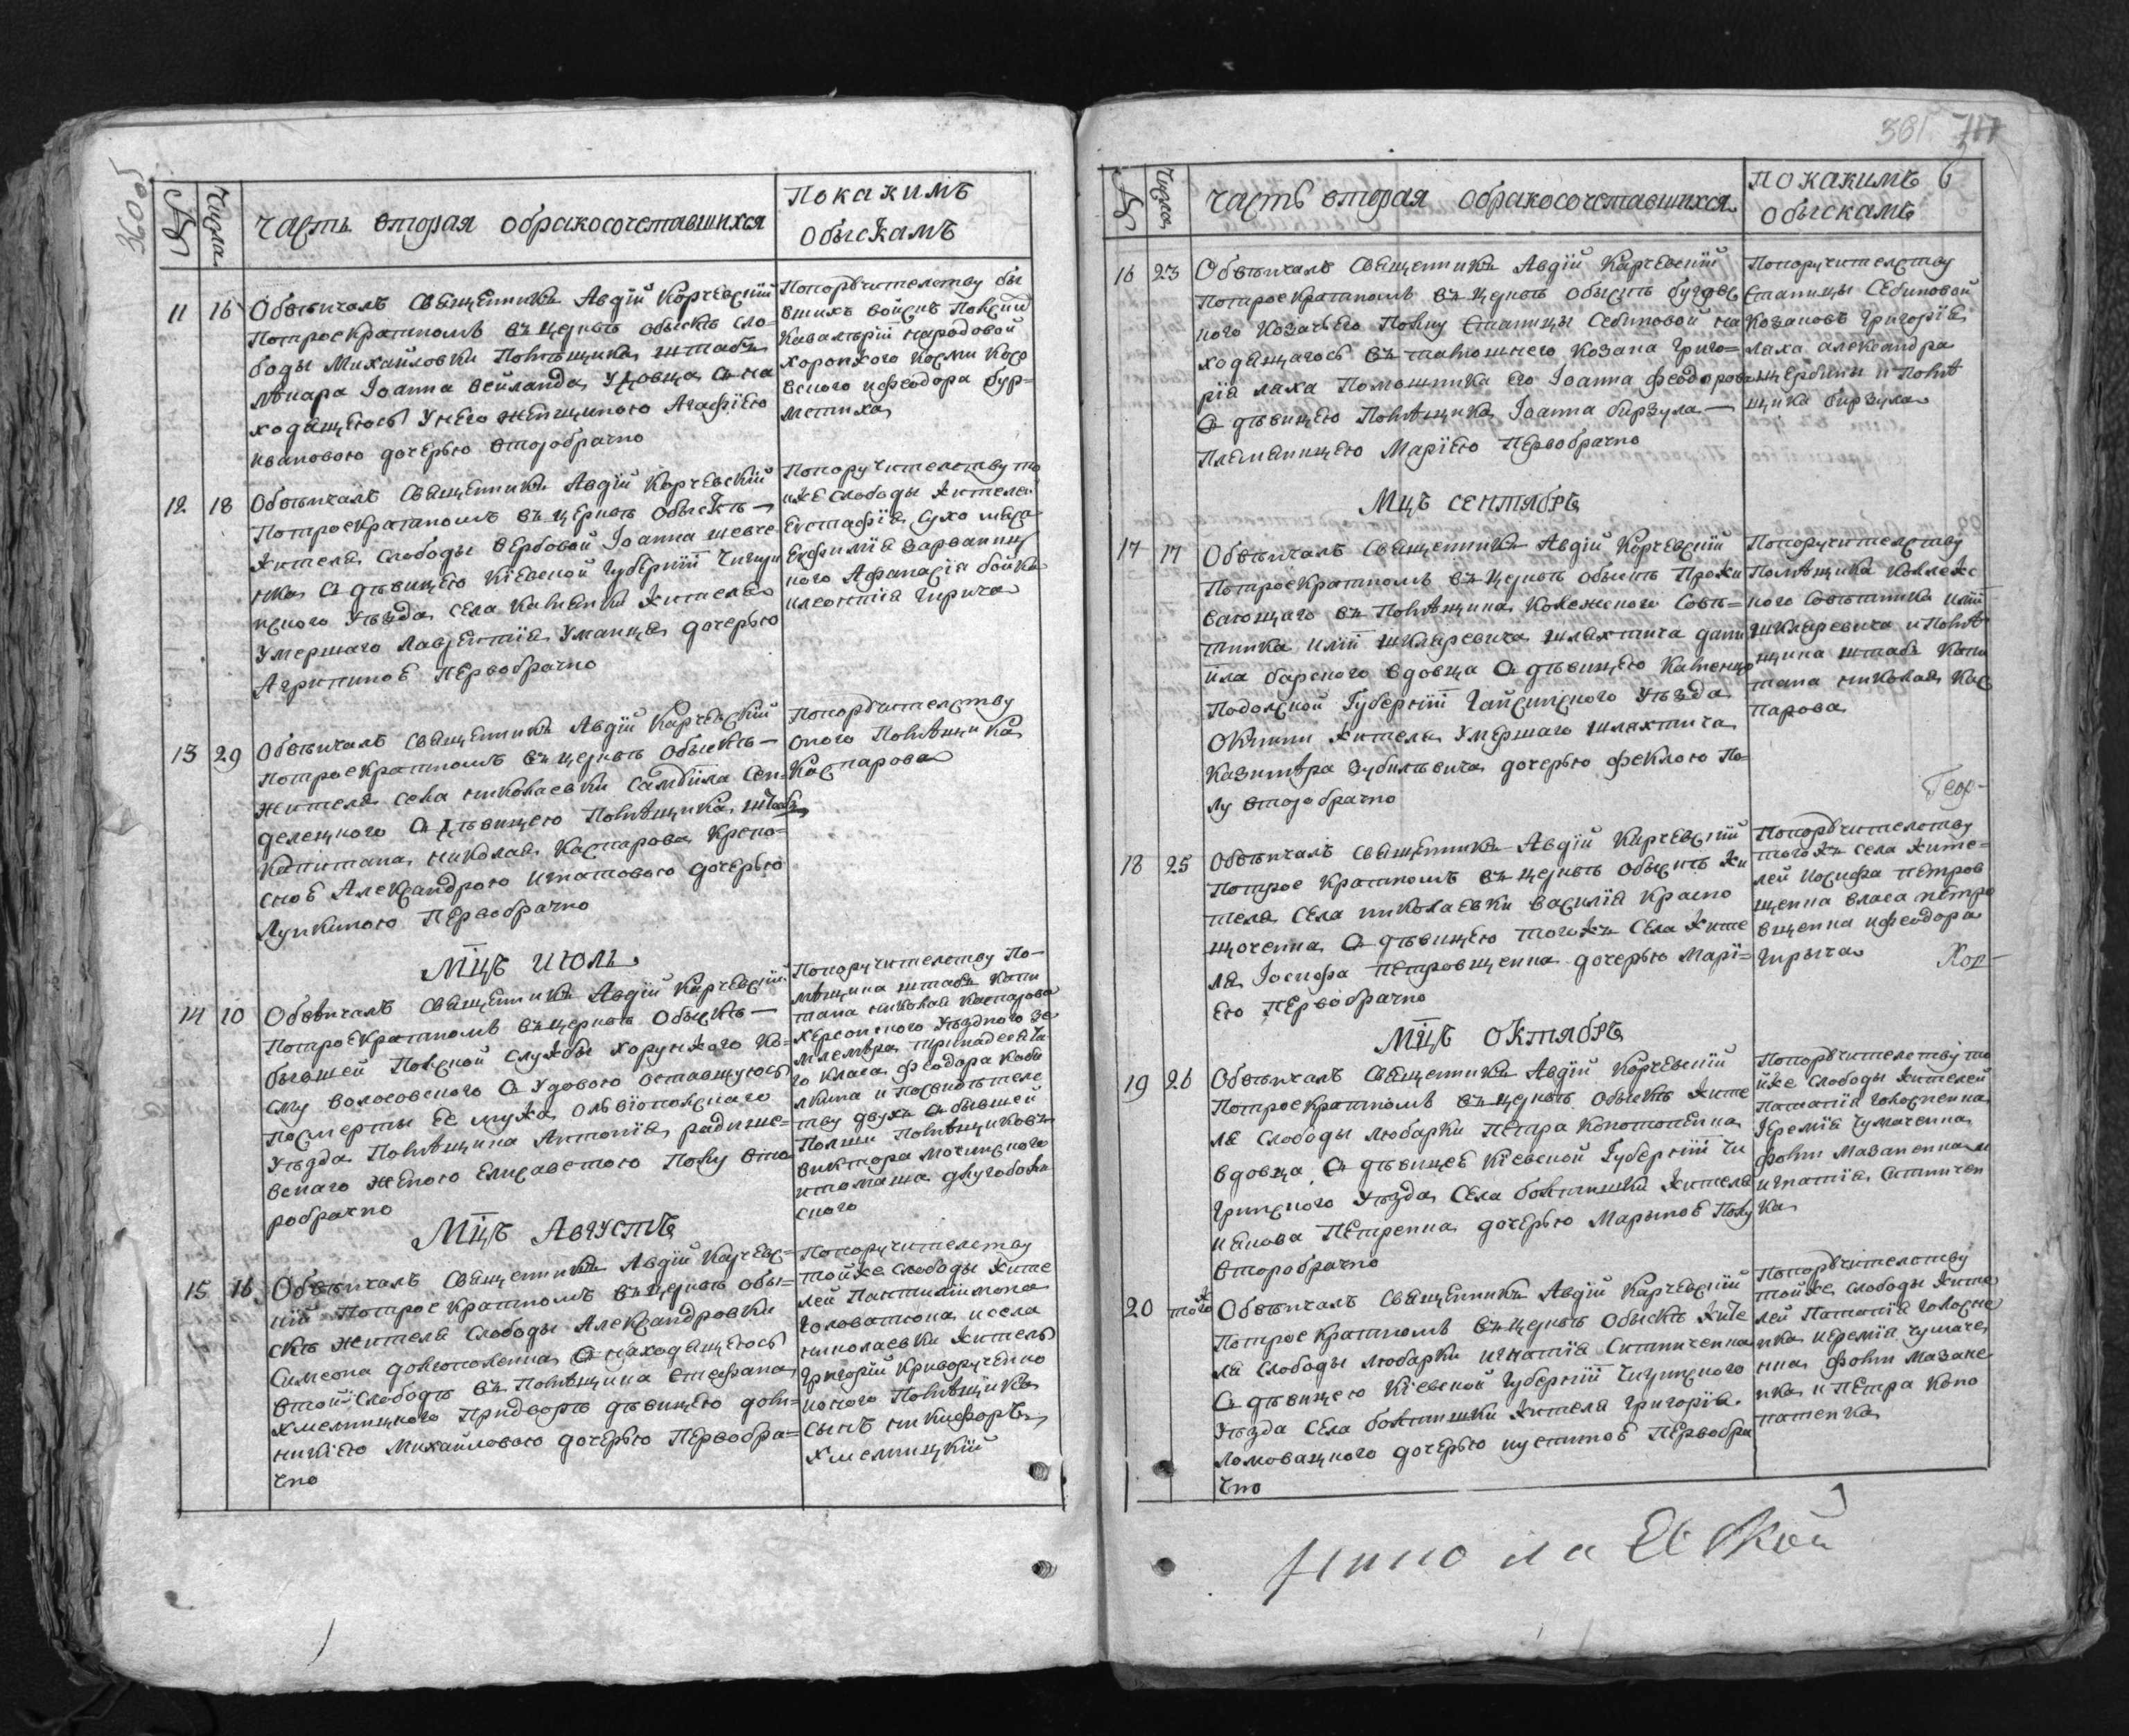 360 об
№
Числа
Часть вторая обракосочетавшихся
Покакимъ
Обыскамъ
11
16
Обвѣнчалъ Священникъ Авдій Корчевскій
Потроекратномъ въ церквѣ обыскѣ сло-
боды Михайловки Помѣщика штабъ
лѣкара Іоанна Вейланда удовца съ на
ходящеюсь Унего женщиною Агафіею
ивановою дочерью второбрачно
Попоручителству бы
вшихъ войскъ Полскихъ
Кавалѣріи народовой
хоронжого Козми Косо
вского ифеодора бур=
метиха
12
18
Обвѣнчалъ Священникъ Авдій Корчевскій
Потроекратномъ въ церквѣ Обыскѣ —
Жителя Слободы Вербовой Іоанна шевче
нка съ дѣвицею Кіевской Губерніи Чигри
нского Уѣзда села Каменки Жителя
Умершаго Лаврентія Уманца дочерью
Агрипиноѣ Первобрачно
Попоручителству то
иже Слободы Жителей
Евстафія Сухо
Евфимія Зарваниц
кого Афанасія бойка
илеонтія Гирича
13
29
Обвѣнчалъ Священникъ Авдій Карчевскій
Потроекратномъ въ церквѣ Обыскѣ —
Жителя села николаевки Самуила Сен-
делецкого съ дѣвицею Помѣщика штабъ
Капитана николая Каспарова Крепо=
сноѣ Александрою Игнатовою дочерью
Лупкиною Первобрачно
Попоручителству
оного Помѣщика
Каспарова
Мцъ июль
14
10
Обвѣнчалъ Священникъ Авдій Карчевскій
Потроекратномъ въ церквѣ Обыскѣ —
бывшей Полской Службы хорунжого Ко-
сму Волосовского съ Удовою оставщуюсь
посмерти Еѣ мужа Ольвіополскаго
Уѣзда Помѣщика Антонія радише-
вскаго женою Елисаветою Полу вто
робрачно
Попоручителству По-
мѣщика штабъ Капи
тана николая Каспарова
Херсонского Уѣздного зе
млемѣра тринадсята
го класа феодора Каби
лкина и Посвидѣтеле
тву двухъ съ бывшей
Полши Помѣщиковъ
виктора мочинского
итомаша длугоборс
ского
Мцъ Августъ
15
16
Обвѣнчалъ Священникъ Авдій Карчевс=
кій Потроекратномъ въ церквѣ обы=
скѣ жителя Слободы Александровки
Симеона долгополенка съ находящеюсь
втой Слободѣ въ Помѣщика Стефана
Хмелницкого Придворѣ дѣвицею доми=
никіею Михайловою дочерью Первобра=
чно
Попоручителству
тойже Слободы жите
лей Пантилимона
головатюка исела
николаевки житель
григорій Криворученко
ионого Помѣщика
сынъ никифоръ
Хмелницкій
361
№
Числа
часть вторая обракосочетавшихся
Покакимъ 6
обыскамъ
16
23
Обвѣнчалъ Священникъ Авдій Карчевскій
Потроекратномъ въ церквѣ обыскѣ бугдвс
кого Козачьего Полку Станицы Себиновой на
ходящагось въ тамошнего козака Григо=
рія ляха Помошника его Іоанна феодорова
съ дѣвицею Помѣщика Іоанна бирзула —
Племянницею Маріею Первобрачно
Попоручителству
Станицы Себиновой
козаковъ Григорія
ляха александра
щербини и Помѣ
щика бирзула
Мцъ сентябрь
17
17
Обвѣнчалъ Священникъ Авдій Корчевскій
Потроекратномъ въ церквѣ обыскѣ Прожи
вающаго въ Помѣщика Колежского Совѣ=
тника иліи шкляревича шляхтича дани
ила барского вдовца съ дѣвицею Каменцо
Подолской Губерніи Гайсинского Уѣзда
окнини жителя Умершаго шляхтича
Казимѣра Зубилѣвича дочерью феклою По-
лу второбрачно
Попоручителству
Помѣщика Колежс
кого Совѣтника иліи
шкляревича и Помѣ
щика штабъ Капи
тана николая Кас
парова
18
25
Обвѣнчалъ Священникъ Авдій Карчевскій
Потрое кратномъ въ церквѣ Обыскѣ Жи
теля села николаевки василія Красно
щоченка съ дѣвицею тогожъ Села Жите
ля Іосифа Петровщенка дочерью Марі=
ею Первобрачно
Попоручителству
тогожъ села жите=
лей иосифа петров
щенка власа петро
вщенка ифеодора
гирыча
Мцъ октябрь
19
26
Обвѣнчалъ Священникъ Авдій Корчевскій
Потроекратномъ въ церквѣ Обыскѣ Жите
ля Слободы Любарки Петра Конотопенка
вдовца съ дѣвицеѣ Кіевской Губерніи Чи
гринского Уѣзда Села болтишки жителя
иякова Петренка дочерью Марыноѣ Полу
второбрачно
Попоручителству то
йже Слободы жителей
Потапія голосненка
Іеремія Чумаченка
фоми Мазаненка и
игнатія Ситничен
ка
20
тогож
Обвѣнчалъ Священникъ Авдій Карчевскій
Потроекратномъ въ церквѣ Обыскѣ Жите
ля Слободы любарки игнатія Ситниченка
съ дѣвицею Кіевской Губерніи Чигринского
Уѣзда Села болтишки жителя Григорія
ломовацкого дочерью иустиноѣ Первобра
чно
Попоручителству
тойже Слободы жите
лей Потапія Голосне
нка иеремія чумаче
нка фоми Мазане
нка и Петра Коно
патенка